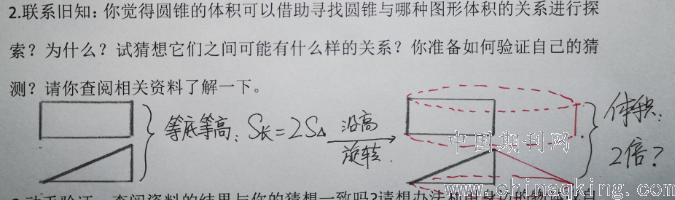 2.联系旧知：你觉得圆锥的体积可以借助寻找圆锥与哪种图形体积的关系进行探
索？为什么？试猜想它们之间可能有什么样的关系？你准备如何验证自己的猜
测？请你查阅相关资料了解一下。
等底等高：S长=2S△
沿高
旋转
体积：
2倍？
中国期刊网
www.chinaqking.com
查阅资料的结果与你的猜想一致吗?请想办法利用身边的物